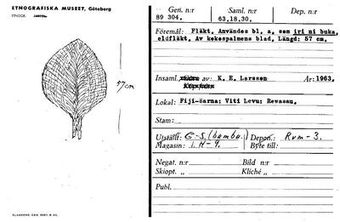 ETNOGRAFISKA MUSEET, Göteborg
57cm
Gen. n:r
89 304.
Saml. n:r
63,18,30.
Dep. n:r
Föremål: Fläkt, Användes bl, a, som iri ni buka,
eldfläkt, Av kokospalmens blad, Längd: 57 cm,
Insaml. av: K. E. Larsson
År: 1963,
Köpt
Lokal: Fiji-öarna: Viti Levu: Rewasau,
Stam:
Utställt: G-S, (bambu)
Depon.: Rum-3.
Magasin: I. H-9.
Byte till:
Negat. n:r
Bild n:r
Skiopt. n:r
Kliché n:r
Publ.